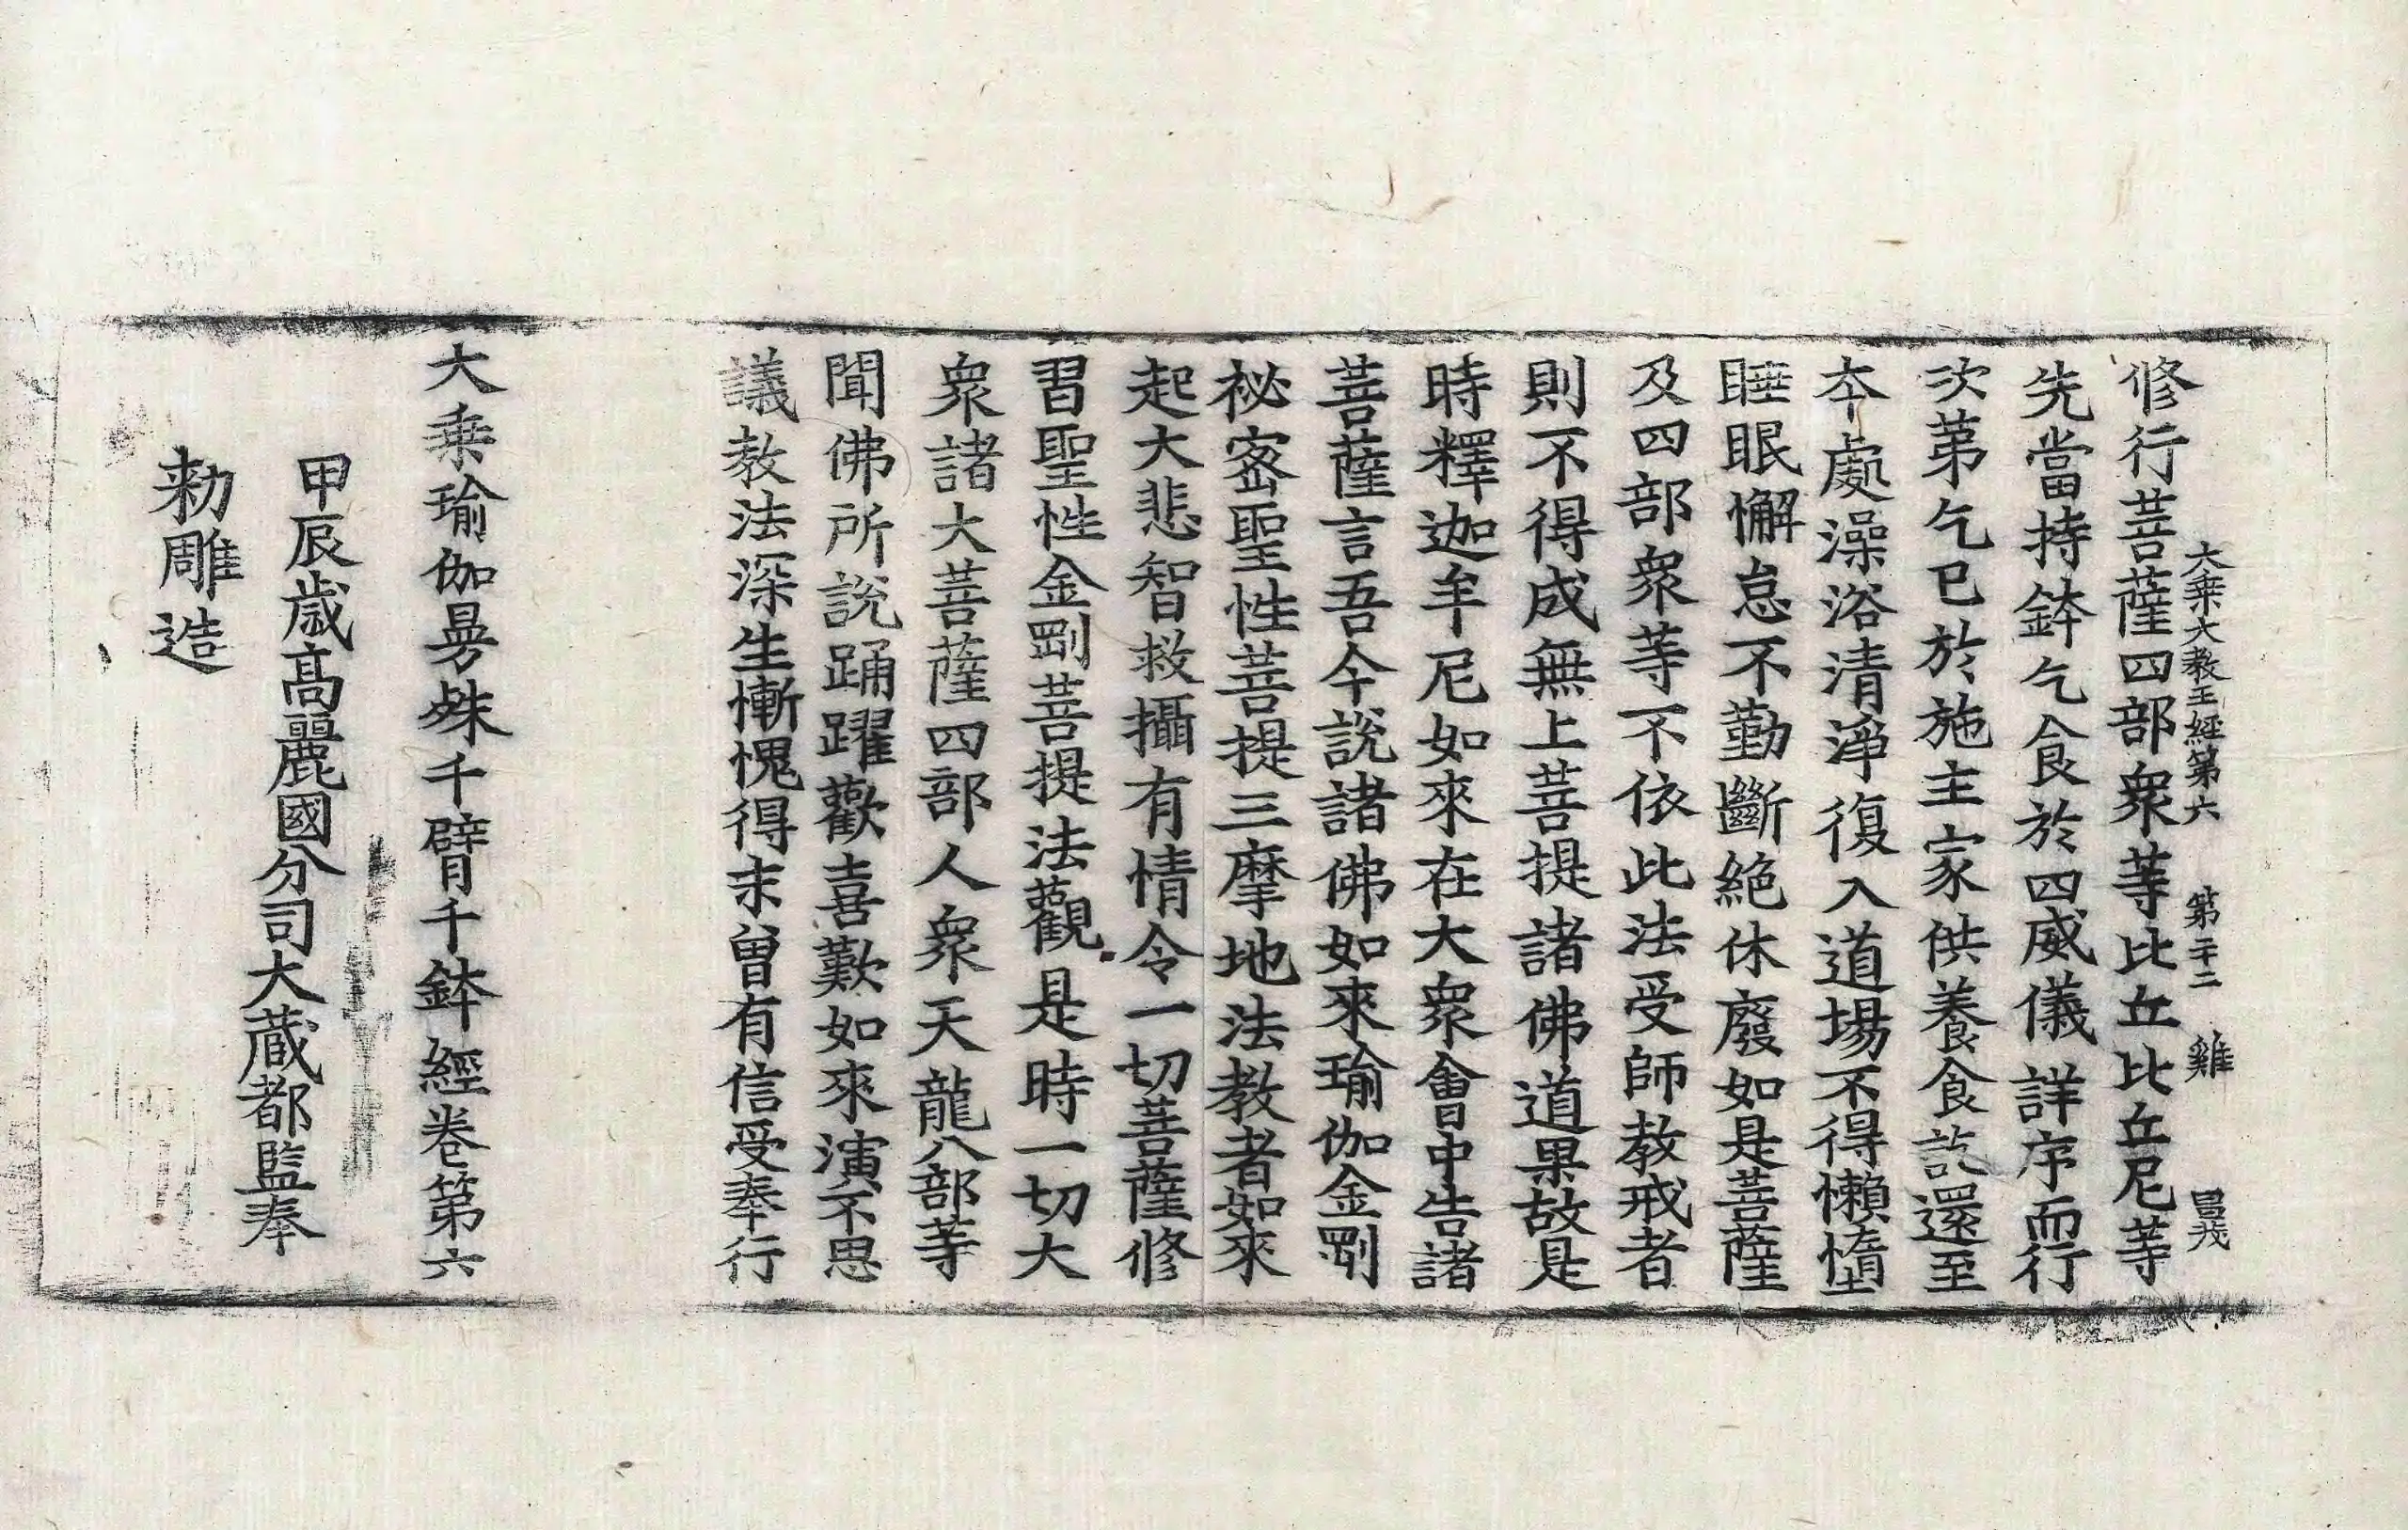 大乘大教王經第六 第二十二 雞
修行菩薩四部衆等比丘比丘尼等
先當持鉢乞食於四威儀詳序而行
次第乞已於施主家供養食訖還至
本處澡浴清淨復入道場不得懶憜
睡眠懈怠不勤斷絕休廢如是菩薩
及四部衆等不依此法受師教戒者
則不得成無上菩提諸佛道果故是
時釋迦牟尼如來在大衆會中告諸
菩薩言吾今說諸佛如來瑜伽金剛
祕密聖性菩提三摩地法教者如來
起大悲智救攝有情令一切菩薩修
習聖性金剛菩提法觀是時一切大
衆諸大菩薩四部人衆天龍八部等
聞佛所說踊躍歡喜歎如來演不思
議教法深生慚愧得未曾有信受奉行
大乘瑜伽曼殊千臂千鉢經卷第六
甲辰歲高麗國分司大藏都監奉
勅雕造